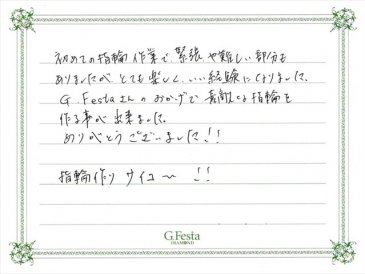 初めての指輪作業で緊張や難しい部分も
ありましたが、とても楽しく、いい経験になりました。
G.Festaさんのおかげで素敵な指輪を
作る事が出来ました。
ありがとうございました!!
指輪作り サイコ〜 !!
G.Festa
DIAMOND